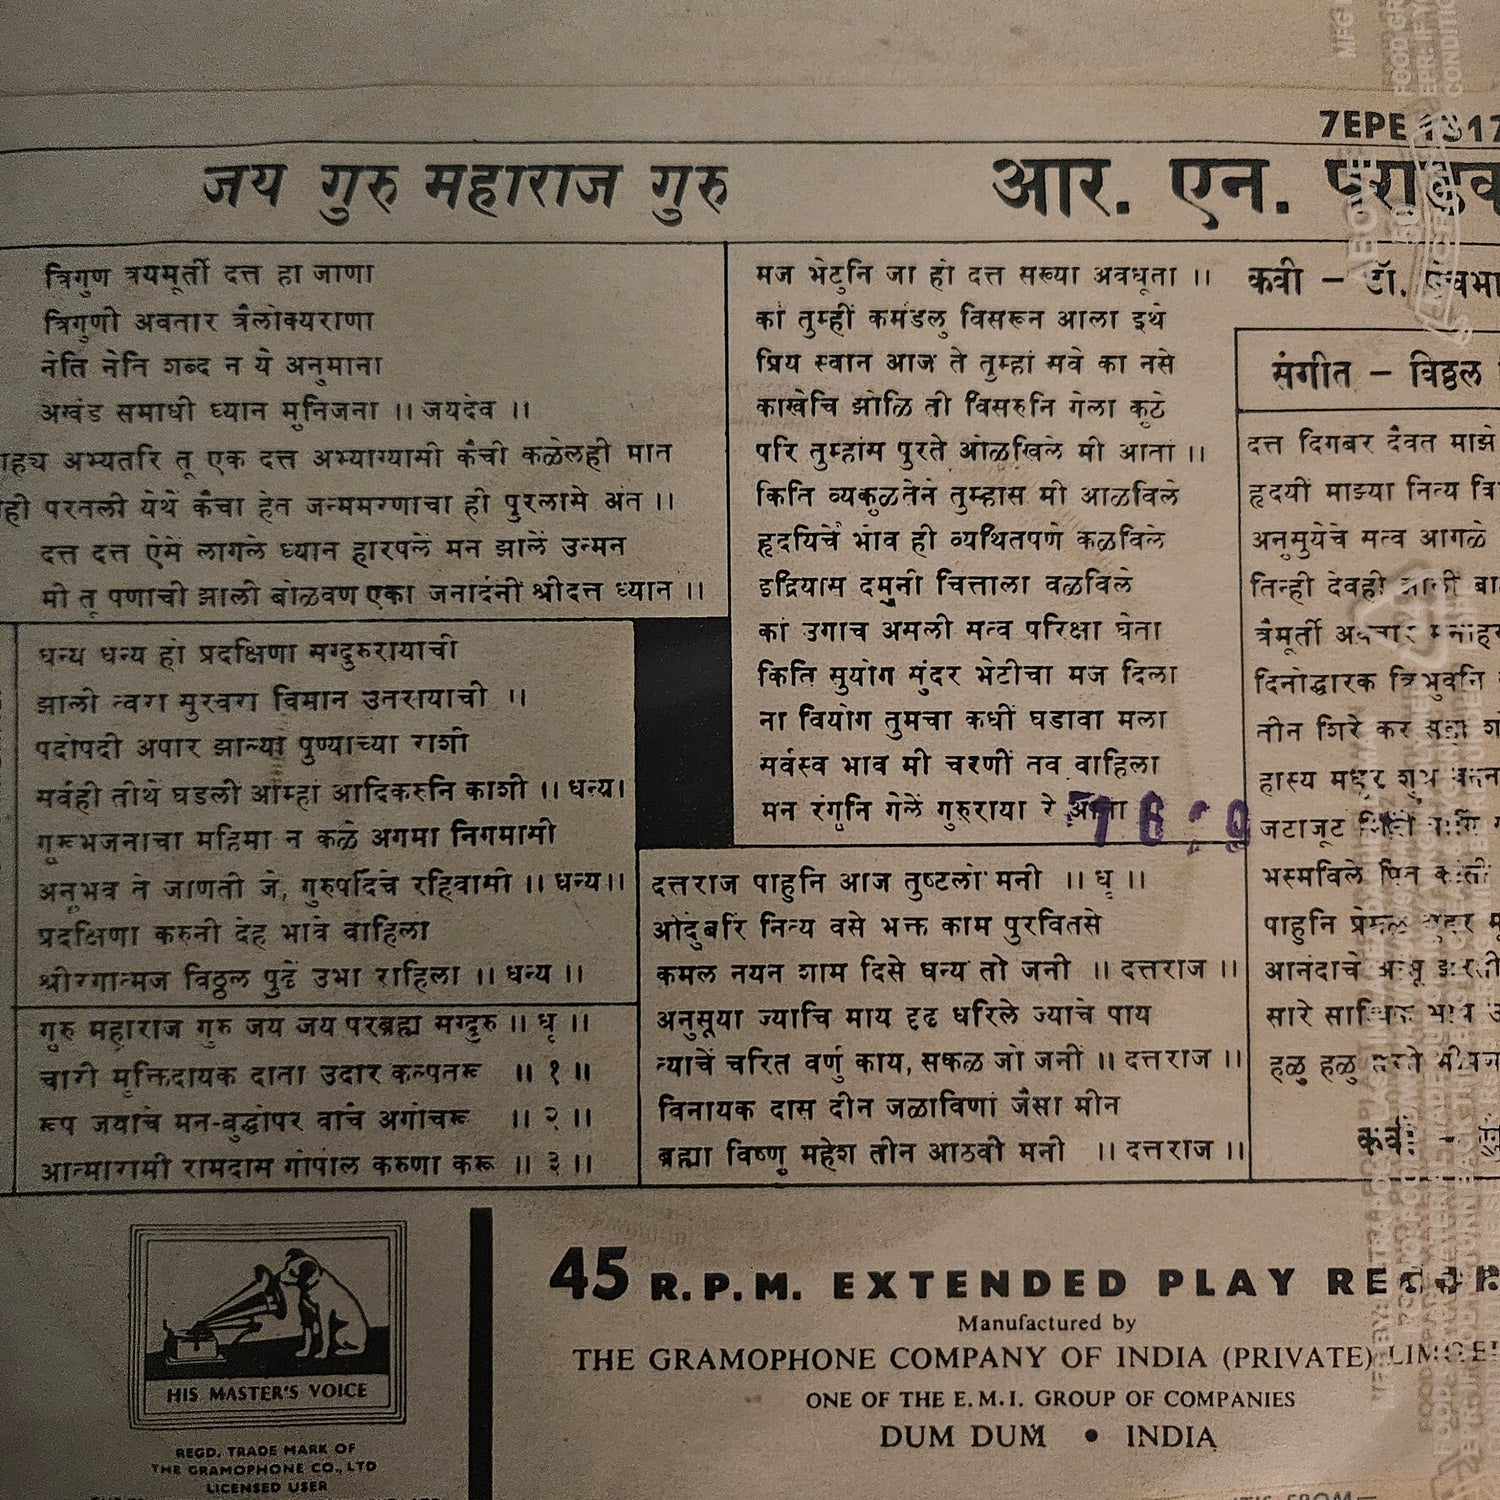 7EPE
जय गुरु महाराज गुरु
आर. एन.
त्रिगुण त्रयमूर्ती दत्त हा जाणा
त्रिगुणी अवतार त्रैलोक्यराणा
नेति नेति शब्द न ये अनुमाना
अखंड समाधी ध्यान मुनिजना ।। जयदेव ।।
अभ्यतरि तू एक दत्त अभ्याग्यासी कैची कळेलही मात
परतली येथें कैचा हेत जन्ममरणाचा ही पुरलासे अंत ।।
दत्त दत्त ऐसें लागले ध्यान हारपलें मन झालें उन्मन
मी तू पणाची झाली बोळवण एका जनार्दनीं श्रीदत्त ध्यान ।।
धन्य धन्य हो प्रदक्षिणा सग्दुरुरायाची
झाली त्वरा सुरवरा विमान उतरायाची ।।
पदोपदी अपार झाल्या पुण्याच्या राशी
सर्वही तीर्थे घडली आम्हां आदिकरुनि काशी ।। धन्य।
गुरूभजनाचा महिमा न कळे अगमा निगमासी
अनुभव ते जाणती जे, गुरुपदिचे रहिवासी ।। धन्य।।
प्रदक्षिणा करुनी देह भावे वाहिला
श्रीरंगात्मज विठ्ठल पुढें उभा राहिला ।। धन्य ।।
गुरु महाराज गुरु जय जय परब्रह्म सग्दुरु ।। धृ ।।
चारी मुक्तिदायक दाता उदार कल्पतरू ।। १ ।।
रूप जयाचे मन-बुद्धीपर वाचे अगोचरू ।। २ ।।
आत्मारामी रामदास गोपाल करुणा करू ।। ३ ।।
मज भेटुनि जा हो दत्त सख्या अवधूता ।।
कां तुम्हीं कमंडलु विसरून आला इथे
प्रिय स्वान आज ते तुम्हां सवे का नसे
काखेचि झोळि ती विसरुनि गेला कुठे
परि तुम्हांस पुरते ओळखिले मी आता ।।
किति व्यकुळतेने तुम्हास मी आळविले
हृदयिचें भाव ही व्यथितपणे कळविले
इंद्रियास दमुनी चित्ताला वळविले
कां उगाच असली सत्व परिक्षा घेता
किति सुयोग सुंदर भेटीचा मज दिला
ना वियोग तुमचा कधीं घडावा मला
सर्वस्व भाव मी चरणीं तव वाहिला
मन रंगुनि गेलें गुरुराया रे
दत्तराज पाहुनि आज तुष्टलों मनी ।। धृ ।।
औदुंबरिं नित्य वसे भक्त काम पुरवितसे
कमल नयन शाम दिसे धन्य तो जनी ।। दत्तराज ।।
अनुसूया ज्याचि माय दृढ धरिले ज्याचे पाय
त्याचें चरित वर्णु काय, सकळ जो जनीं ।। दत्तराज ।।
विनायक दास दीन जळाविणां जैसा मीन
ब्रह्मा विष्णु महेश तीन आठवी मनी ।। दत्तराज ।।
कवी – डॉ.
संगीत – विठ्ठल
दत्त दिगंबर दैवत माझे
हृदयीं माझ्या नित्य
अनुसुयेचे सत्व आगळे
तिन्ही देवही
त्रैमूर्ती
दिनोद्धारक
तीन शिरे कर
हास्य
जटाजूट
भस्मविले
पाहुनि प्रेमळ
आनंदाचे
सारे
हळु हळु
कवी –
HIS MASTER'S VOICE
REGD. TRADE MARK OF
THE GRAMOPHONE CO., LTD
LICENSED USER
45 R.P.M. EXTENDED PLAY
Manufactured by
THE GRAMOPHONE COMPANY OF INDIA (PRIVATE)
ONE OF THE E.M.I. GROUP OF COMPANIES
DUM DUM • INDIA